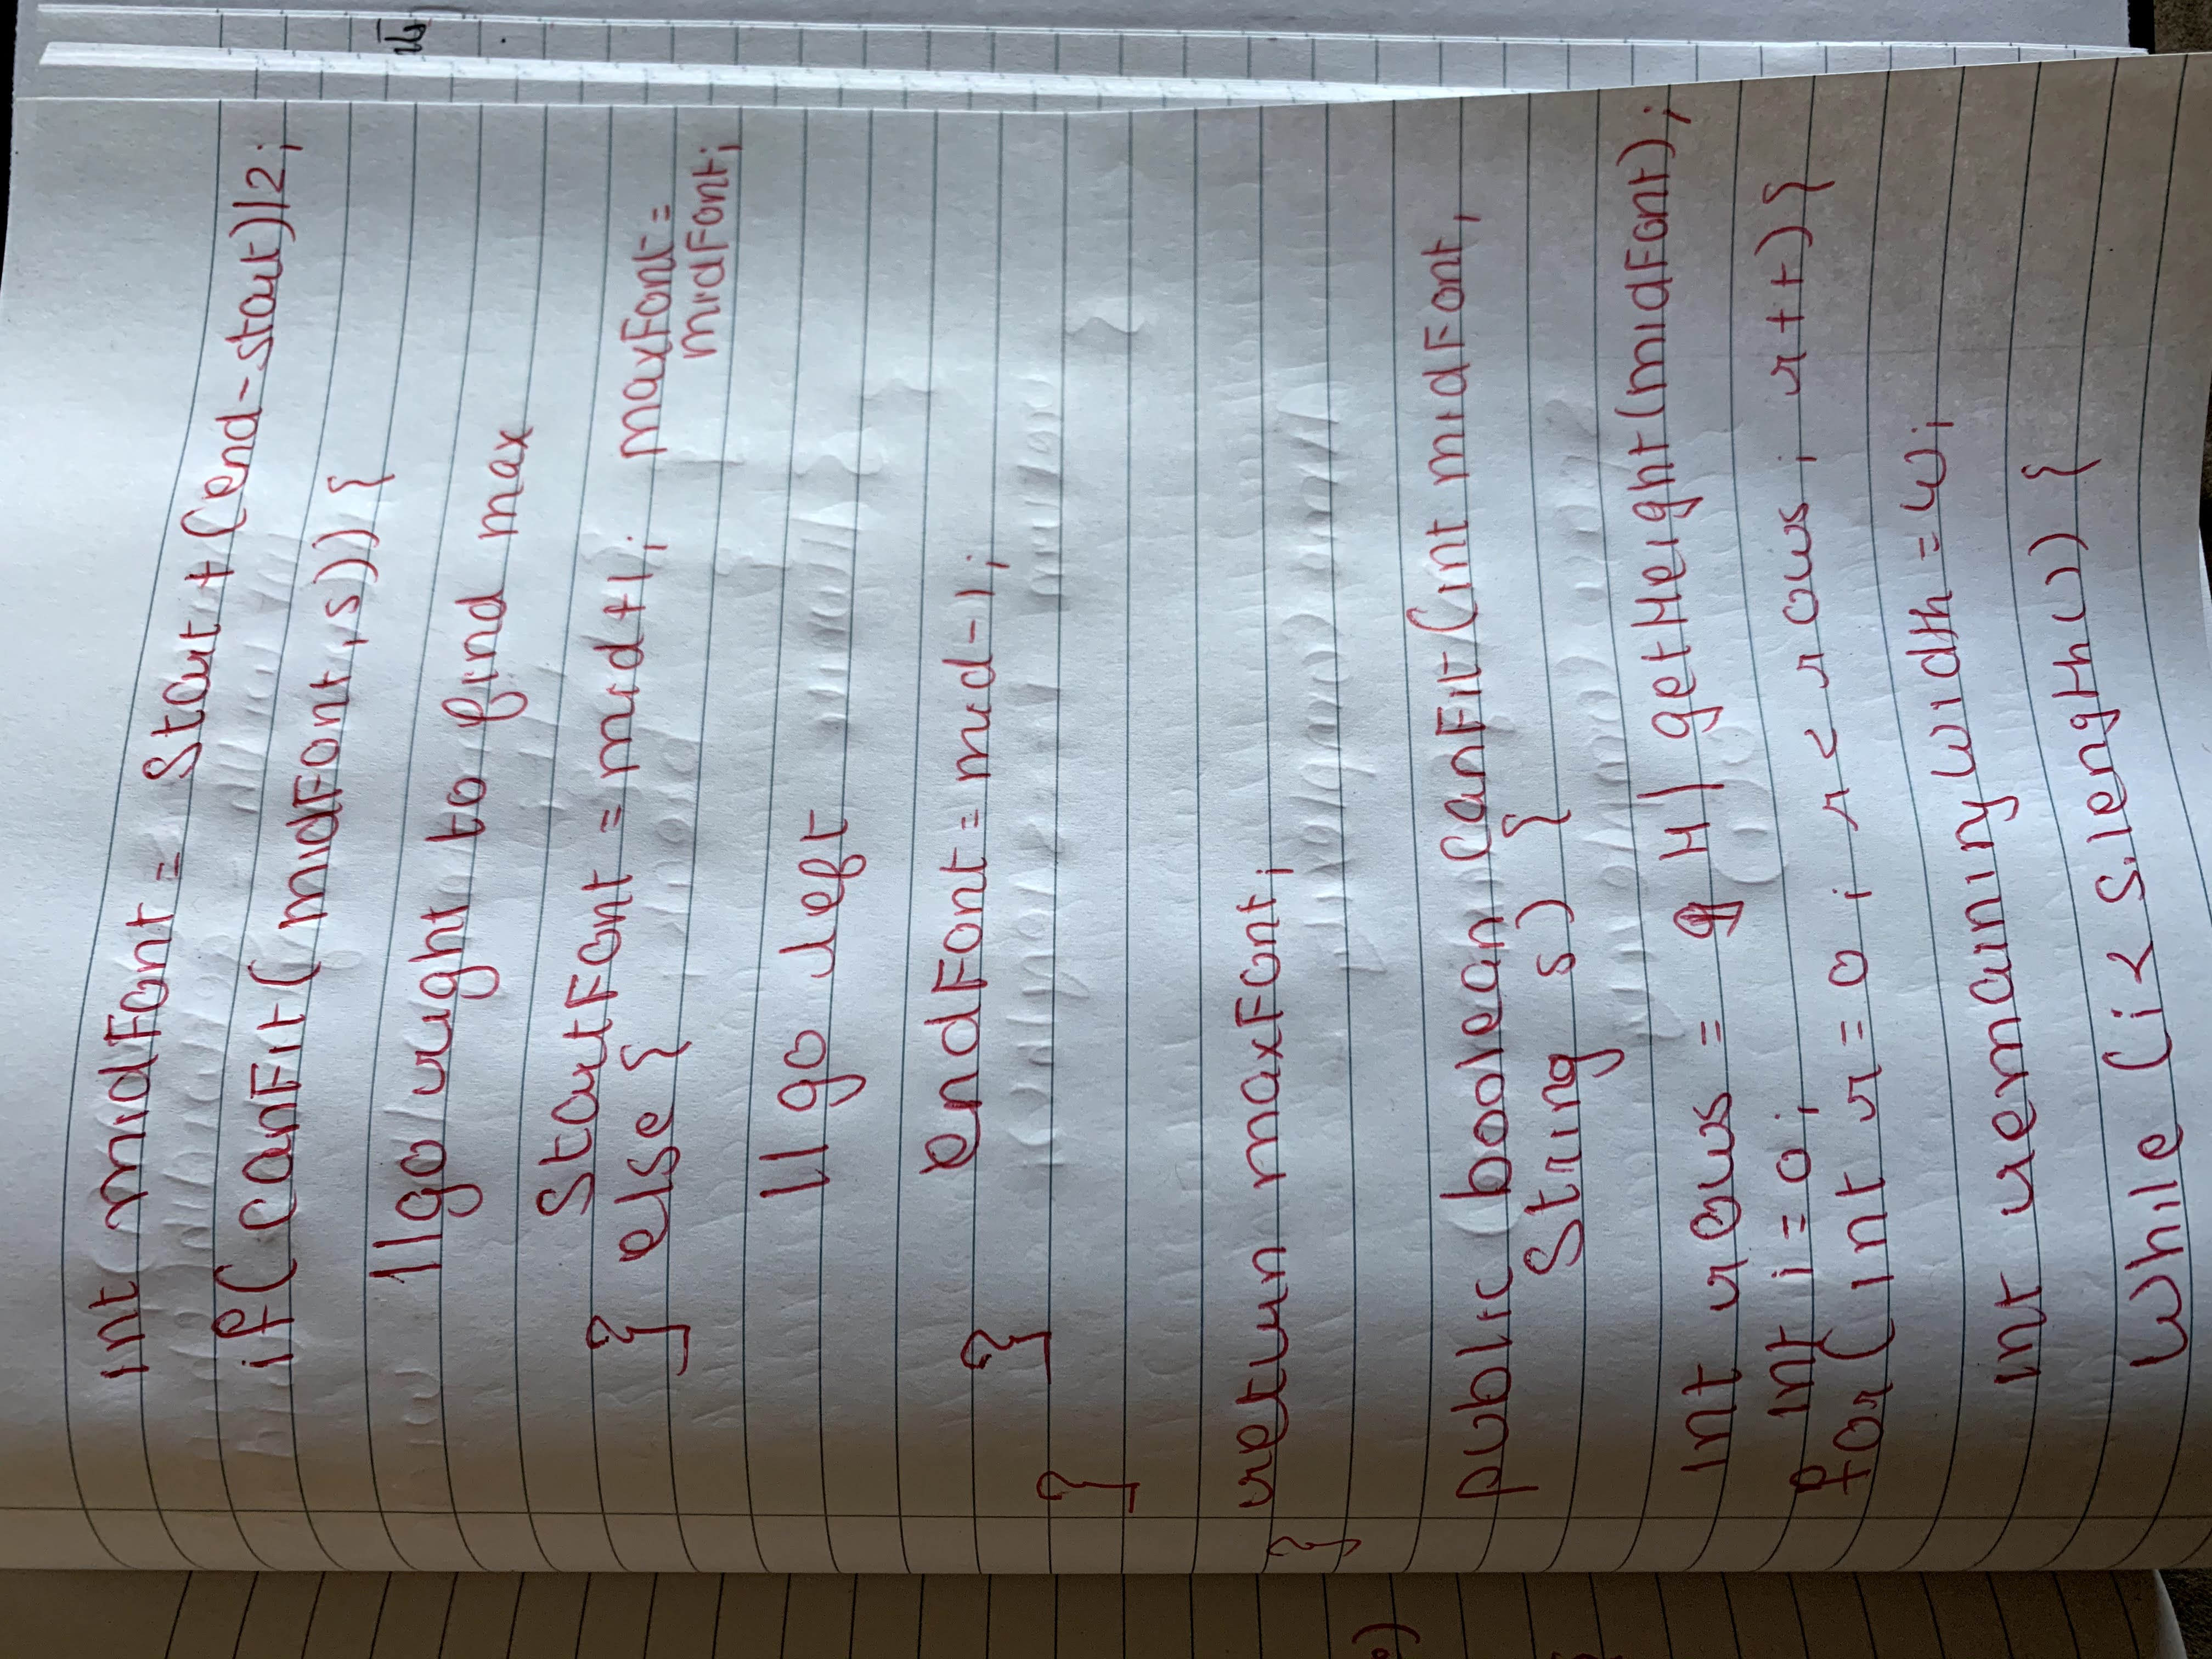 int midFont = start + (end-start)/2;
if( canFit( midFont, s)) {
//go right to find max
startFont = mid+1; maxFont =
midFont;
} else {
//go left
endFont = mid-1;
}
}
return maxFont;
}
public boolean canFit(int midFont,
String s) {
int rows = H / getHeight(midFont);
int i = 0;
for( int r = 0 ; r < rows ; r++) {
int remaining width = w;
while (i < s.length()) {